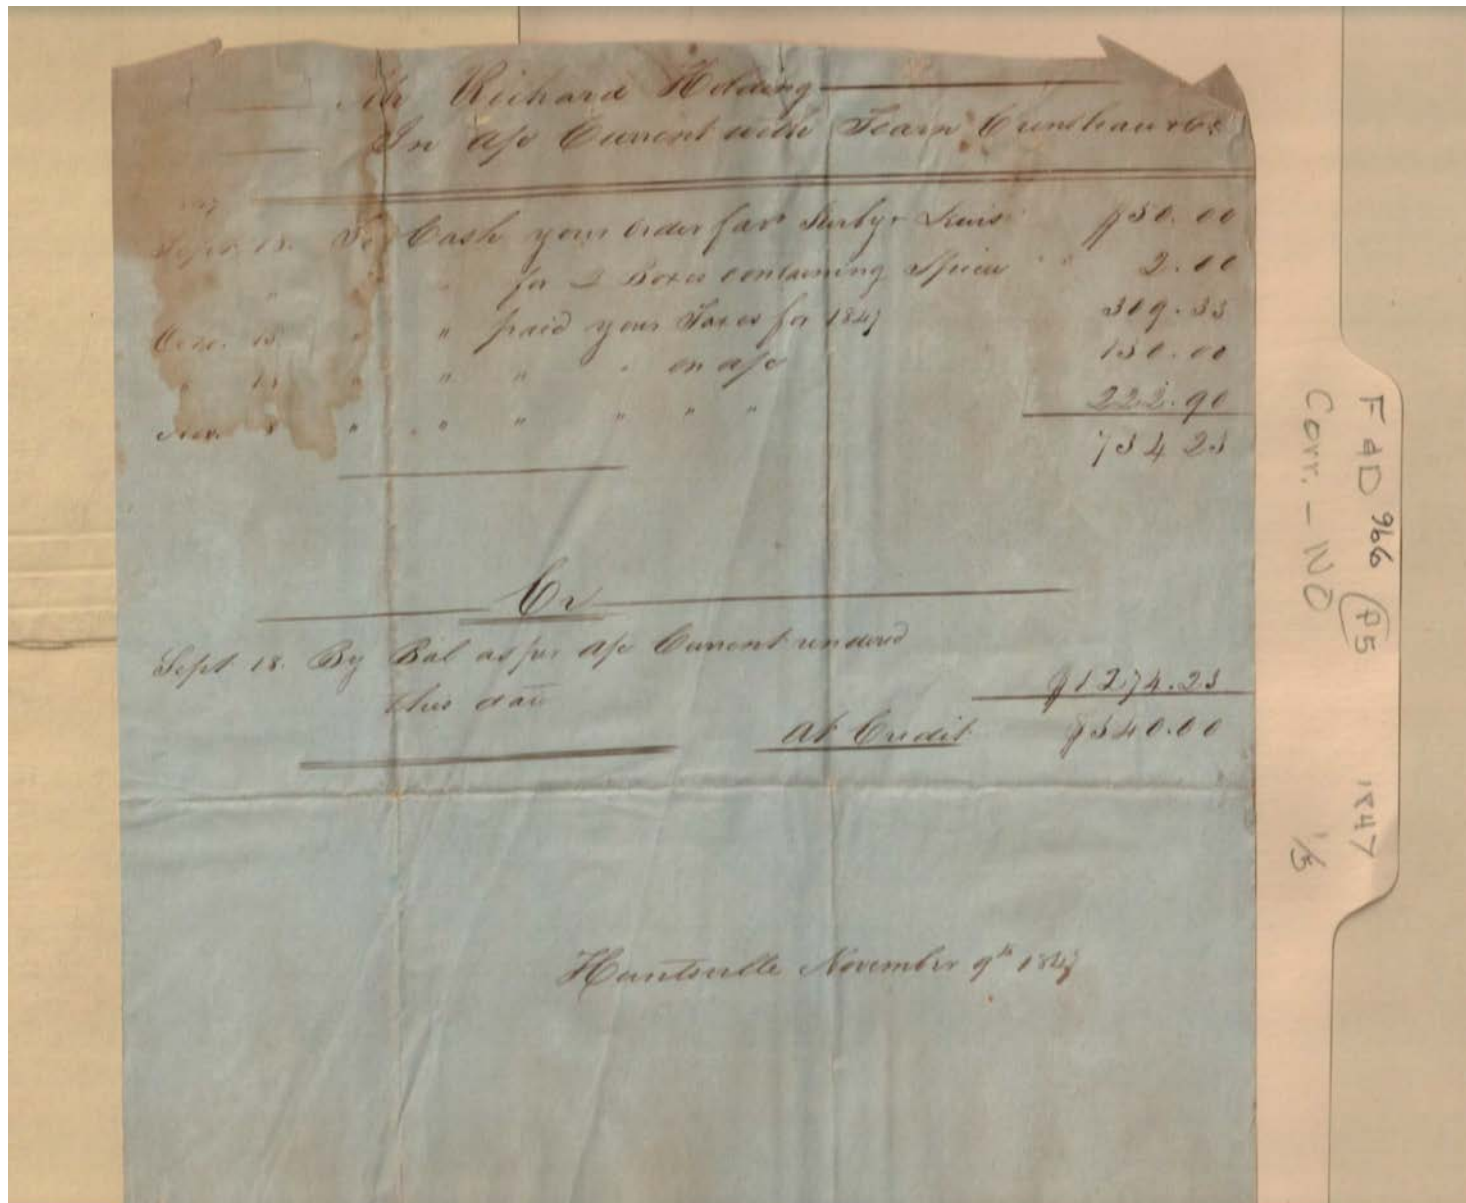 Mr Richard Holding
In a/c Current with Fearn Crenshaw & Co
Sept. 18. To Cash your order favr Lewis $50.00
" " for 2 Boxes containing Spices " 2.00
15 " " paid your Taxes for 1847 309.33
" 15 " " " " on a/c 150.00
Nov. 8 " " " " " " 222.90
734 23
Cr
Sept 18. By Bal as per a/c Current rendered
this date $1274.23
At Credit $540.00
Huntsville November 9th 1847
F&D 966 P5 1847
Corr. — ND 1/5